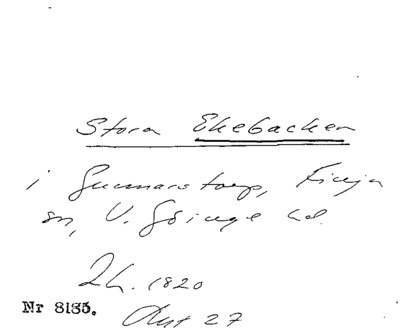 Stora Ekebacken
i Gunnarstorp, Finja
sn, V. Göinge hd.
Lh. 1820
Nr 8185. Akt 27